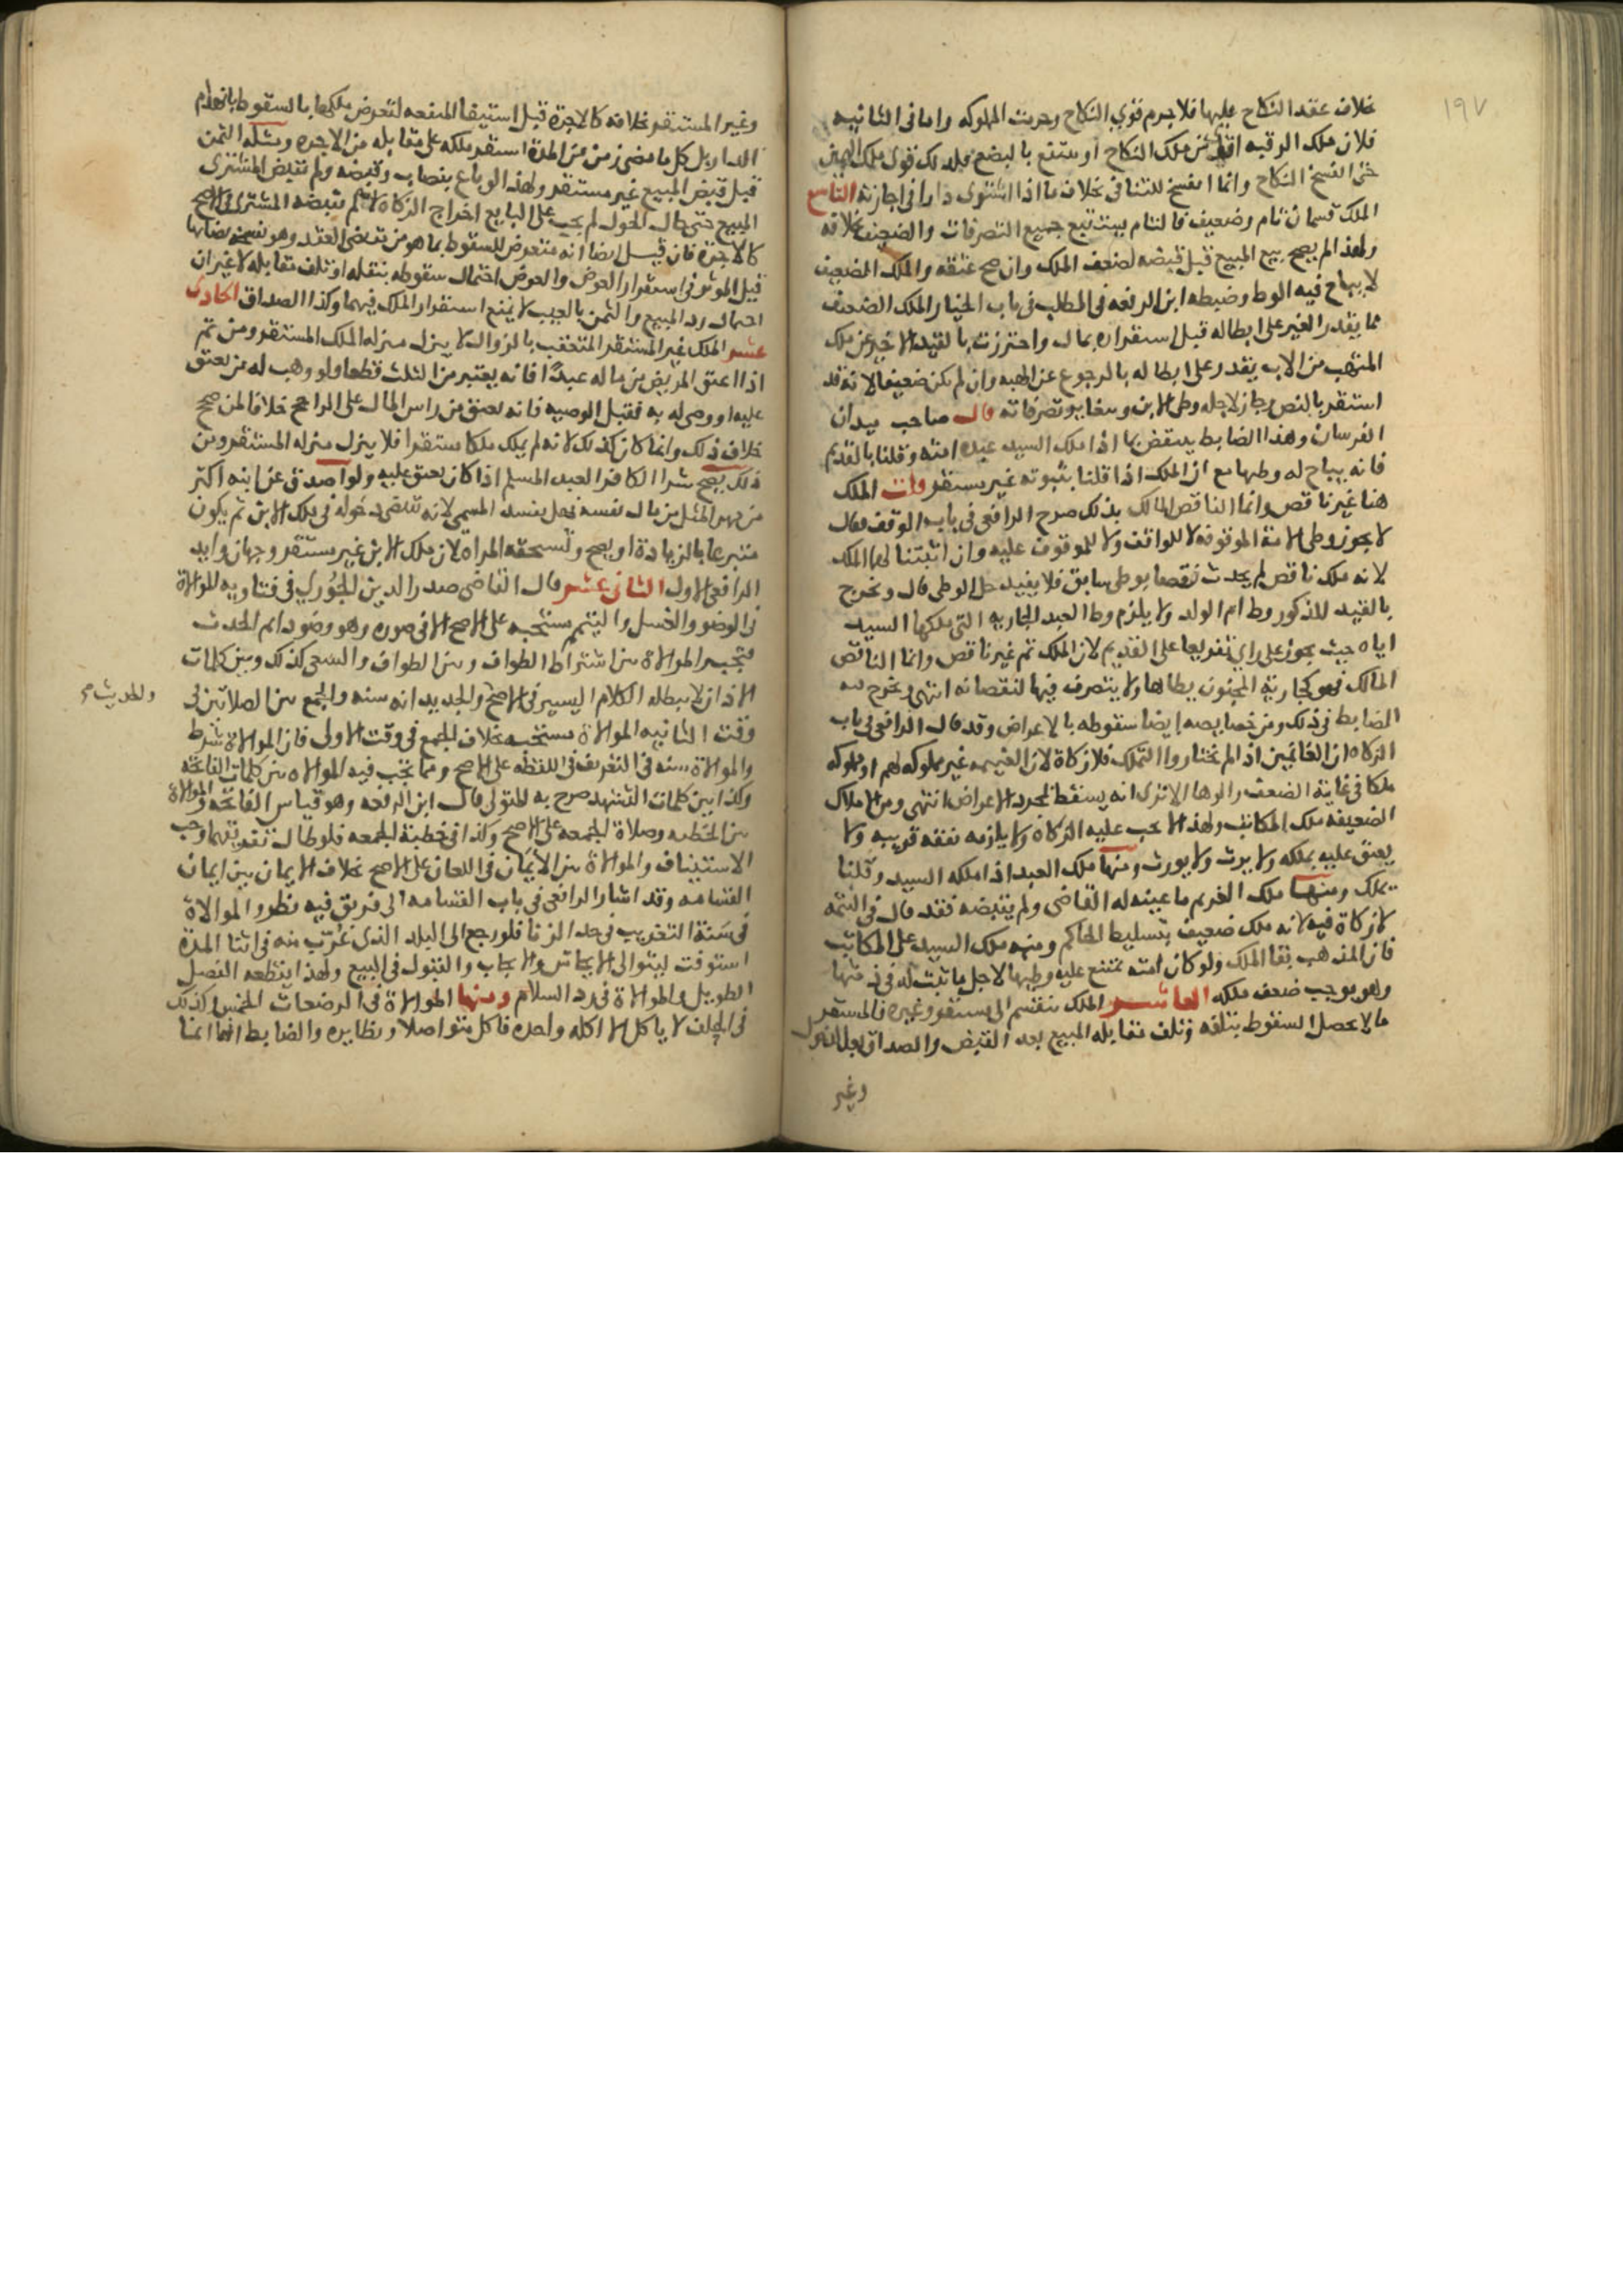 ١٩٧
خلاف عقد النكاح عليها فلا جرم قوي النكاح وحرمت المملوكه واما في الثانيه
فلان ملك الرقبه اقوى من ملك النكاح او يستتبع بالبضع فلذلك قوى ملك اليمين
حتى انفسخ النكاح وانما انفسخ للتنافي بخلاف ما اذا اشترى دارا في اجارته التاسع
الملك قسمان تام وضعيف فالتام يستتبع جميع التصرفات والضعيف بخلافه
ولهذا لم يصح بيع المبيع قبل قبضه لضعف الملك وان صح عتقه والملك الضعيف
لا يباح فيه الوط وضبطه ابن الرفعه في المطلب في باب الخيار الملك الضعيف
مما يقدر الغير على ابطاله قبل استقراره بمال واحترزت بالقيد الاخير عن ملك
المتهب من الاب يقدر على ابطاله بالرجوع عن الهبه وان لم يكن ضعيفا لانه قد
استقر بالنص وجاز لاجله وطى الابن وسايرو تصرفاته قال صاحب ميدان
الفرسان وهذا الضابط ينتقض بما اذا ملك السيد عبده امته وقلنا بالقديم
فانه يباح له وطيها مع ان الملك اذا قلنا بثبوته غير مستقر قلت الملك
هنا غير ناقص وانما الناقص المالك بذلك صرح الرافعي في باب الوقف فقال
لا يجوز وطى الامة الموقوفه لا للواقف ولا للموقوف عليه وان اثبتنا لهما الملك
لانه ملك ناقص لم يحدث نقصا بوطى سابق فلا يفيد حل الوطى قال ونخرج
بالقيد المذكور وط ام الولد ولا يلزم وط العبد الجاريه التي ملكها السيد
اياه حيث يجوز على راي تفريعا على القديم لان الملك ثم غير ناقص وانما الناقص
المالك فهو كجارية المجنون يطاها ولا يتصرف فيها لنقصانه انتهى ويخرج منه
الضابط في ذلك ومن خصايصه ايضا سقوطه بالاعراض وقد قال الرافعي في باب
الزكاه ان الغانمين اذا لم يختاروا التملك فلا زكاة لان الغنيمه غير مملوكه لهم او مملوكه
ملكا في غاية الضعف والوها الا ترى انه يسقط بمجرد الاعراض انتهى ومن الاملاك
الضعيفه ملك المكاتب ولهذا لا يجب عليه الزكاة ولا يلزمه نفقه قريبه ولا
يعتق عليه بملكه ولا يرث ولا يورث ومنها ملك العبد اذا ملكه السيد وقلنا
يملك ومنها ملك الغريم ما عينه له القاضي ولم يقبضه فقد قال في التتمه
لا زكاة فيه لانه ملك ضعيف بتسليط الحاكم ومنه ملك السيد على المكاتب
فان المذهب بقا الملك ولو كان امته يمتنع عليه وطيها لاجل ما ثبت له في ذمتها
وهو يوجب ضعف ملكه العاشر الملك ينقسم الى مستقر وغيره فالمستقر
ما لا يحتمل السقوط بتلفه وتلف مقابله المبيع بعد القبض والصداق بعد الدخول
وغير
وغير المستقر بخلافه كالاجرة قبل استيفا المنفعه لتعرض ملكها بالسقوط بانهدام
الدار بل كل ما مضى زمن من المدة استقر ملكه على مقابله من الاجره ومثله الثمن
قبل قبض المبيع غير مستقر ولهذا لو باع بنصاب وقبضه ولم يقبض المشتري
المبيع حتى حال الحول لم يجب على البايع اخراج الزكاه لم يقبضه المشترى في الاصح
كالاجرة فان قيل ايضا انه متعرض للسقوط بما هو من مقتضى العقد وهو
قيل الموثر في استقرار العوض والعوض احتمال سقوطه بتقله او تلف مقابله لا غير ان
احتمال رد المبيع والثمن بالعيب لا يمنع استقرار الملك فيهما وكذا الصداق الحادي
عشر الملك غير المستقر المتعقب بالزوال لا ينزل منزله الملك المستقر ومن ثم
اذا اعتق المريض من ماله عبدا فانه يعتبر من الثلث قطعا ولو وهب له من يعتق
عليه او وصى له به فقبل الوصيه فانه يعتق من راس المال على الراجح خلافا لمن صحح
خلاف ذلك وانما كان كذلك لانه لم يملك ملكا مستقرا فلا ينزل منزله المستقر ومن
ذلك يصح شرا الكافر العبد المسلم اذا كان يعتق عليه ولو اصدق عن ابنه اكثر
من مهر المثل من مال نفسه فهل يفسد المسمى لانه يتضمن دخوله في ملك الابن ثم يكون
متبرعا بالزيادة او يصح وتستحقه المراة لان ملك الابن غير مستقر وجهان وايد
الرافعي الاول الثاني عشر قال القاضي صدر الدين الجوري في فتاويه الموالاة
في الوضو والغسل والتيمم مستحبه على الاصح الا في صوره وهو وضو دايم الحدث
فتجب والموالاة بين اشتراط الطواف وبين الطواف والسعي كذلك وبين كلمات
الاذان لا يبطله الكلام اليسير في الاصح والجديد انه سنه والجمع بين الصلاتين في
وقت الثانيه الموالاة مستحبه بخلاف الجمع في وقت الاولى فان الموالاة شرط
والموالاة سنه في التعريف في اللقطه على الاصح ومما تجب فيه الموالاه بين كلمات الفاتحه
وكذا بين كلمات التشهد صرح به المتولي قال ابن الرفعه وهو قياس الفاتحه والموالاة
بين الخطبه وصلاة الجمعه على الاصح وكذا في خطبة الجمعه فلو طال تفريقها وجب
الاستيناف والموالاة بين الايمان في اللعان على الاصح بخلاف الايمان بين ايمان
القسامه وقد اشار الرافعي في باب القسامه الى فرق فيه نظر والموالاة
في سنة التغريب في حد الزنا فلو رجع الى البلد الذي غرب منه في اثنا المدة
استوفت ليتوالى الايحاش والايجاب والقبول في البيع ولهذا يقطعه الفصل
الطويل والموالاة في رد السلام ومنها الموالاة في الرضعات الخمس وكذلك
في الحلف لا ياكل الا اكله واحده فاكل متواصلا ونظايره والضابط انها اثنا